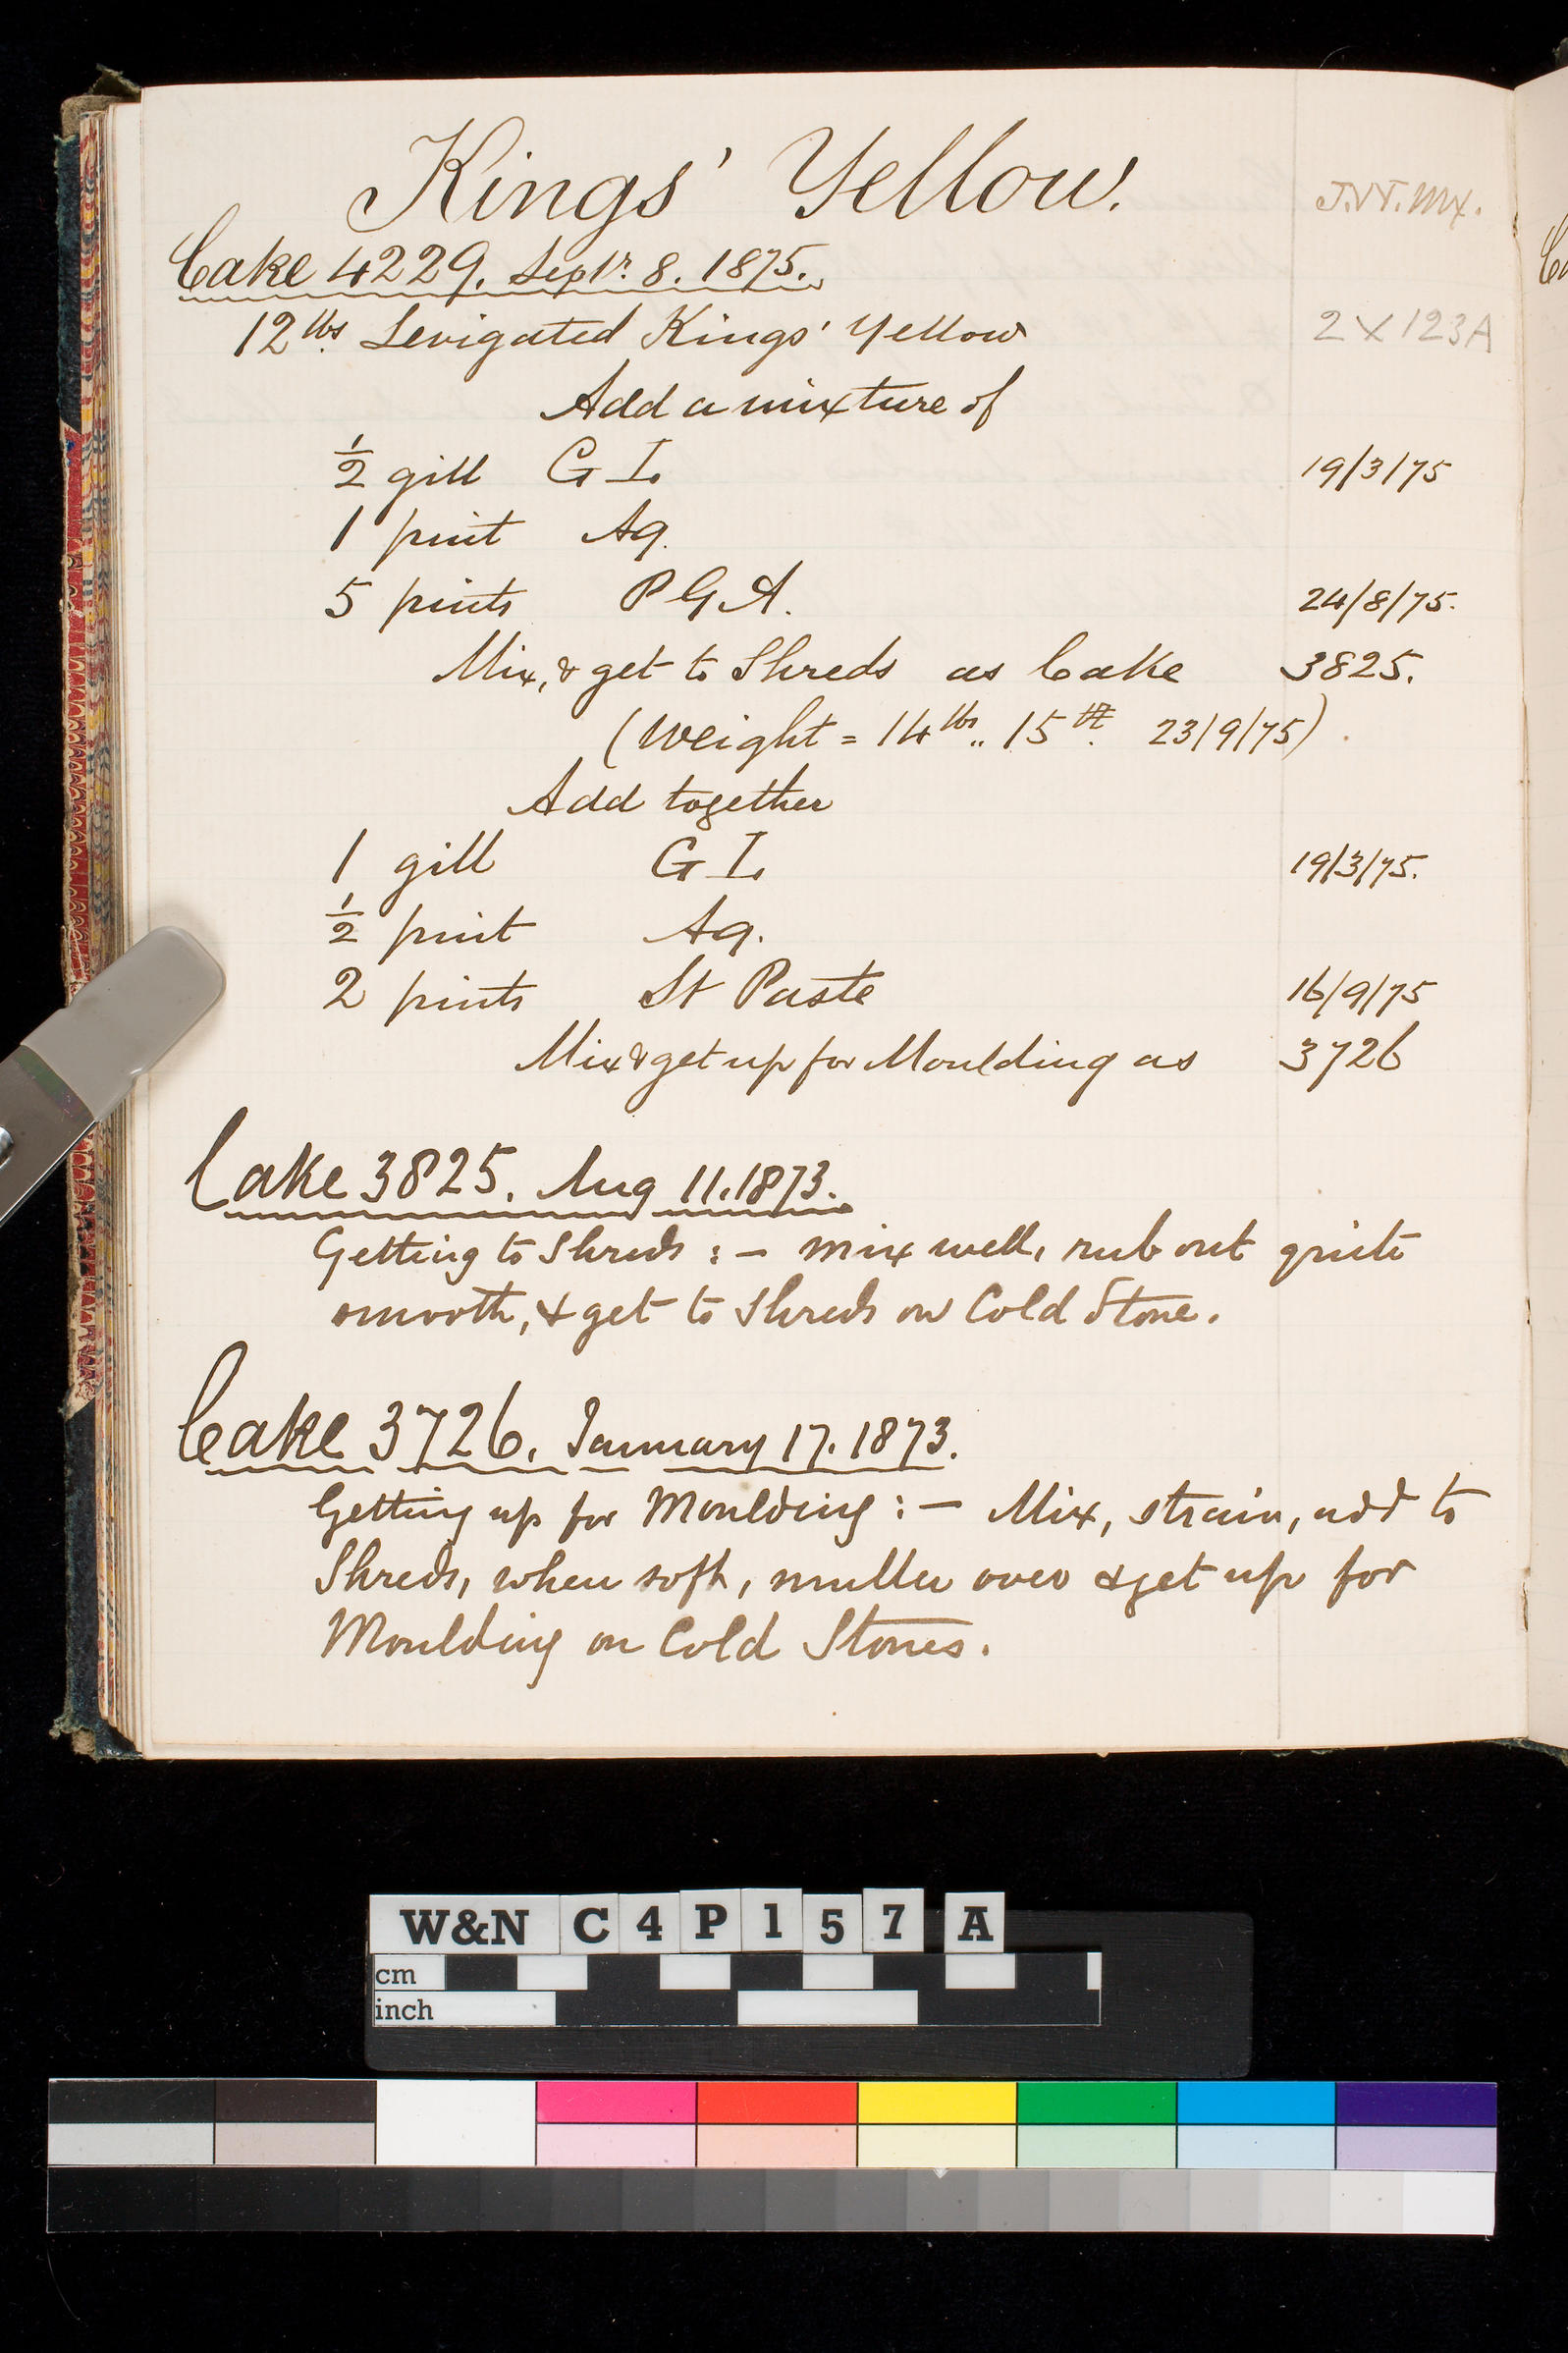 Kings' Yellow.
J.W.Mx.
Cake 4229. Septr. 8. 1875.
12 lbs Levigated Kings' Yellow 2 X 123A
Add a mixture of
½ gill G I. 19/3/75
1 pint Aq.
5 pints P G A. 24/8/75.
Mix, & get to Shreds as Cake 3825.
(Weight = 14 lbs .. 15 23/9/75)
Add together
1 gill G I. 19/3/75.
½ pint Aq.
2 pints St Paste 16/9/75
Mix & get up for Moulding as 3726
Cake 3825. Aug 11. 1873.
Getting to Shreds :— mix well, rub out quite
smooth, & get to Shreds on Cold Stone.
Cake 3726. January 17. 1873.
Getting up for Moulding :— Mix, strain, add to
Shreds, when soft, muller over & get up for
Moulding on Cold Stones.
W&N C4P157 A
cm
inch